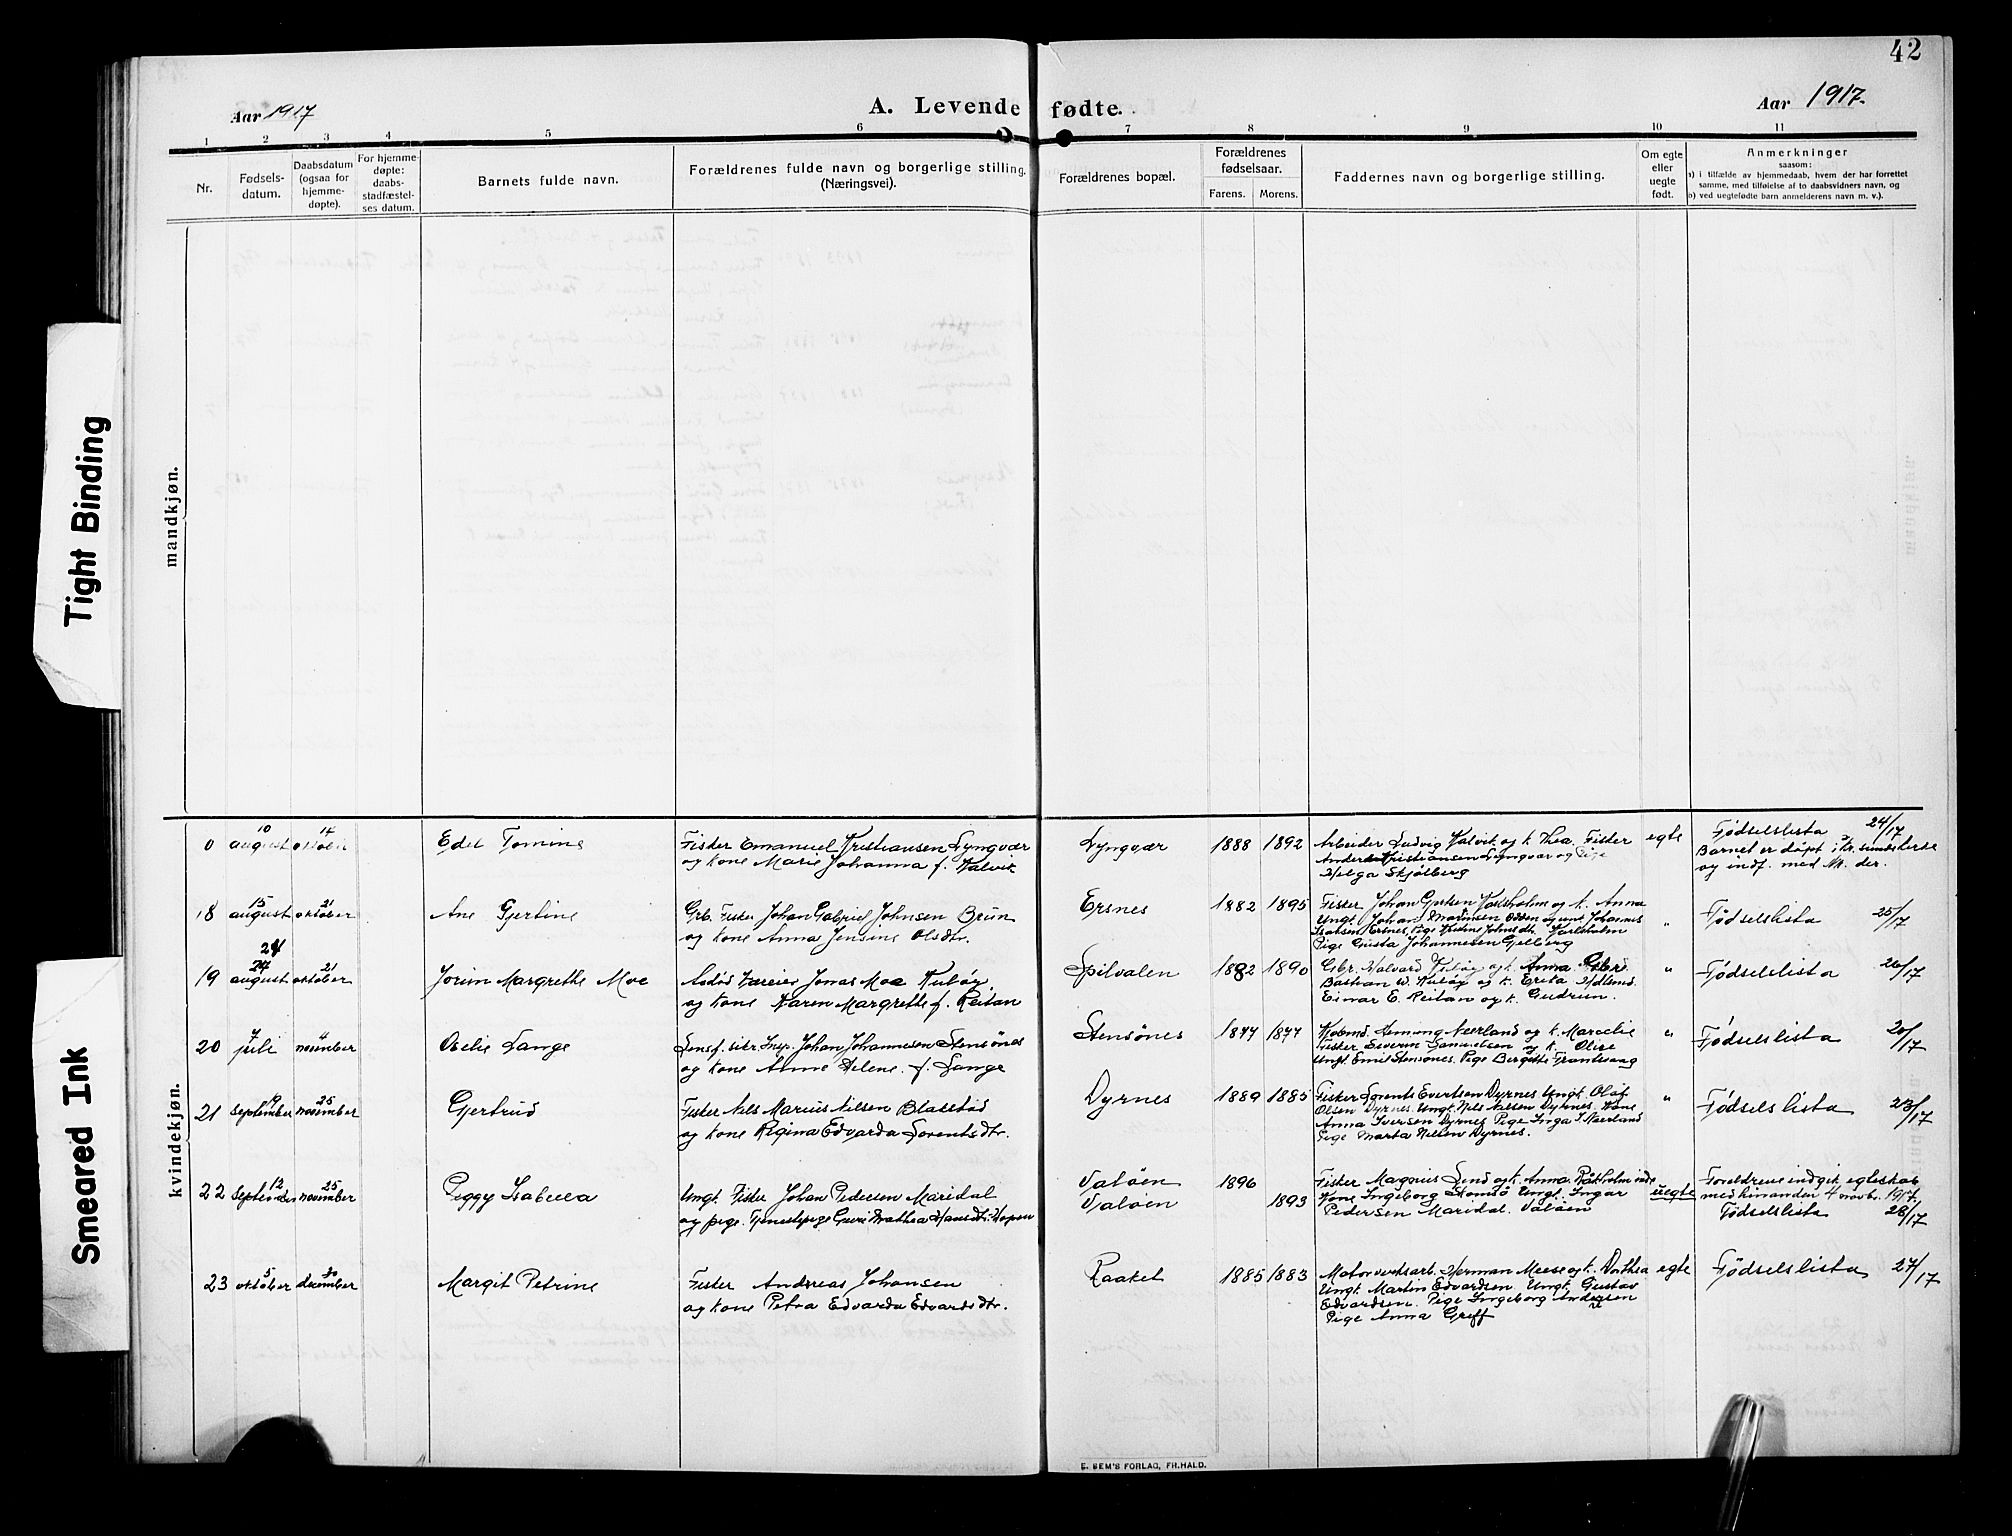 42
Aar 1917
A. Levende fødte.
Aar 1917.
1 2 3 4 5 6 7 8 9 10 11
Nr.
Fødsels-
datum.
Daabsdatum
(ogsaa for
hjemme-
døpte).
For hjemme-
døpte:
daabs-
stadfæstel-
ses datum.
Barnets fulde navn.
Forældrenes fulde navn og borgerlige stilling.
(Næringsvei).
Forældrenes bopæl.
Forældrenes
fødselsaar.
Farens. Morens.
Faddernes navn og borgerlige stilling.
Om egte
eller
uegte
født.
Anmerkninger
saasom:
a) i tilfælde av hjemmedaab, hvem der har forrettet
samme, med tilføielse af to daabsvidners navn, og
b) ved uegtefødte barn anmelderens navn m. v.).
mandkjøn.
kvindekjøn.
0
10
august
14
oktober
Edel Tomine
Fisker Emanuel Kristiansen Lyngvær
og kone Marie Johanna f. Kalvik
Lyngvær
1888 1892
Arbeider Ludvig Kalvik og k. Thea. Fisker
Anders Kristiansen Lyngvær og Pige
Helga Skjølberg
egte
Fødselslista 24/17
Barnet er døpt i Kr.sunds kirke
og indf. med Nr. der.
18
15
august
21
oktober
Ane Gjertine
Grb. Fisker Johan Gabriel Johnsen Brun
og kone Anna Jensine Olsdtr.
Ersnes
1882 1895
Fisker Johan
og k. Anna
Ungt. Johan Martinsen Odden og
Johannes
Ersnes, Pige
Karlsholm
Pige Gusta Johannesen Gjelberg
"
Fødselslista 25/17
19
24
24
august
21
oktober
Jorun Margrethe Moe
Jonas Moe Kubøy
og kone Karen Margrethe f. Reitan
Spilvalen
1882 1890
Gbr. Halvard Kubøy og k. Anna.
Bastian W. Kubøy og k. Erika
Einar E. Reitan og k. Gudrun.
"
Fødselslista 26/17
20
7
juli
4
november
Oselie Lange
Johan Johannesen Stensönes
og kone Anne Helene f. Lange
Stensönes
1877 1877
Neerland og k. Marcelie
Fisker Severin Samuelsen og k. Oline
Ungt. Emil Stensönes. Pige Bergitte
"
Fødselslista 20/17
21
19
september
25
november
Gjertrud
Fisker Nils Marius Nilsen Blakstad
og kone Regina Edvarda Lorentsdtr.
Dyrnes
1889 1885
Fisker Lorents Evertsen Dyrnes Ungt. Olaf
Olsen Dyrnes. Ungt. Nils Nilsen Dyrnes. Kone
Anna Iversen Dyrnes Pige Inga J. Neerland
Pige Marta Nilsen Dyrnes.
"
Fødselslista 23/17
22
12
september
25
november
Peggy Isabella
Ungt. Fisker Johan Pedersen Maridal
og pige. Tjenestepige Guri Mathea Hansdtr. Hopen
Valöen
Valöen
1896
1893
Fisker Magnus Lind og k. Anna
Kone Ingeborg Stomsö Ungt. Ingar
Pedersen Maridal. Valöen
uegte
Foreldrene indgik egteskab
med hinanden 4 novbr. 1917.
Fødselslista 28/17
23
5
oktober
30
december
Margit Petrine
Fisker Andreas Johansen
og kone Petra Edvarda Edvardsdtr.
Raaket
1885 1883
Motorverkstarb. Herman Meese og k. Dorthea
Ungt. Martin Edvardsen Ungt. Gustav
Edvardsen. Pige Ingeborg Andersen
Pige Anna Greff
egte
Fødselslista 27/17
E. SEM'S FORLAG, FR.HALD.
Tight Binding
Smeared Ink